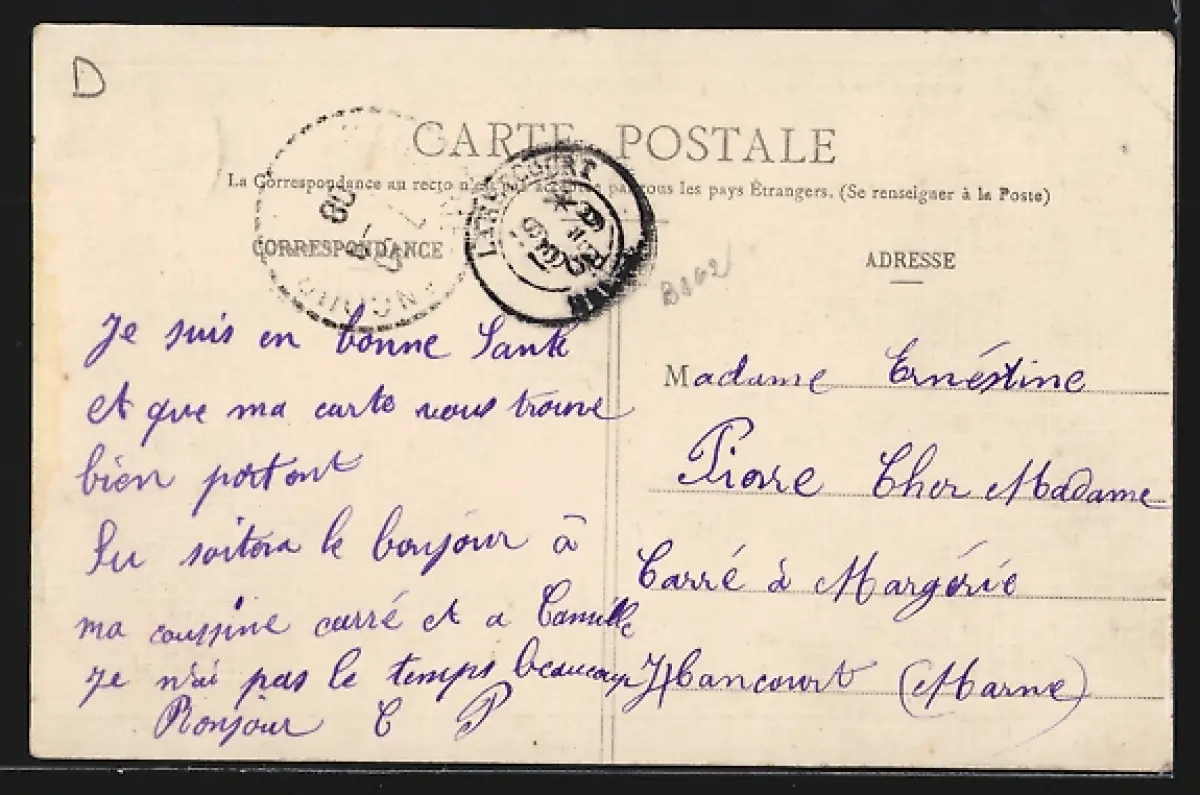 D
CARTE POSTALE
La Correspondance au recto n'est pas acceptée par tous les pays Étrangers. (Se renseigner à la Poste)
CORRESPONDANCE
ADRESSE
Je suis en bonne Santé
et que ma carte vous trouve
bien portant
Tu soitera le bonjour à
ma coussine carré et a Camille
Je n'ai pas le temps beaucoup
Bonjour C P
Madame Ernéstine
Pierre Cher Madame
Carré à Margérie
Hancourt (Marne)